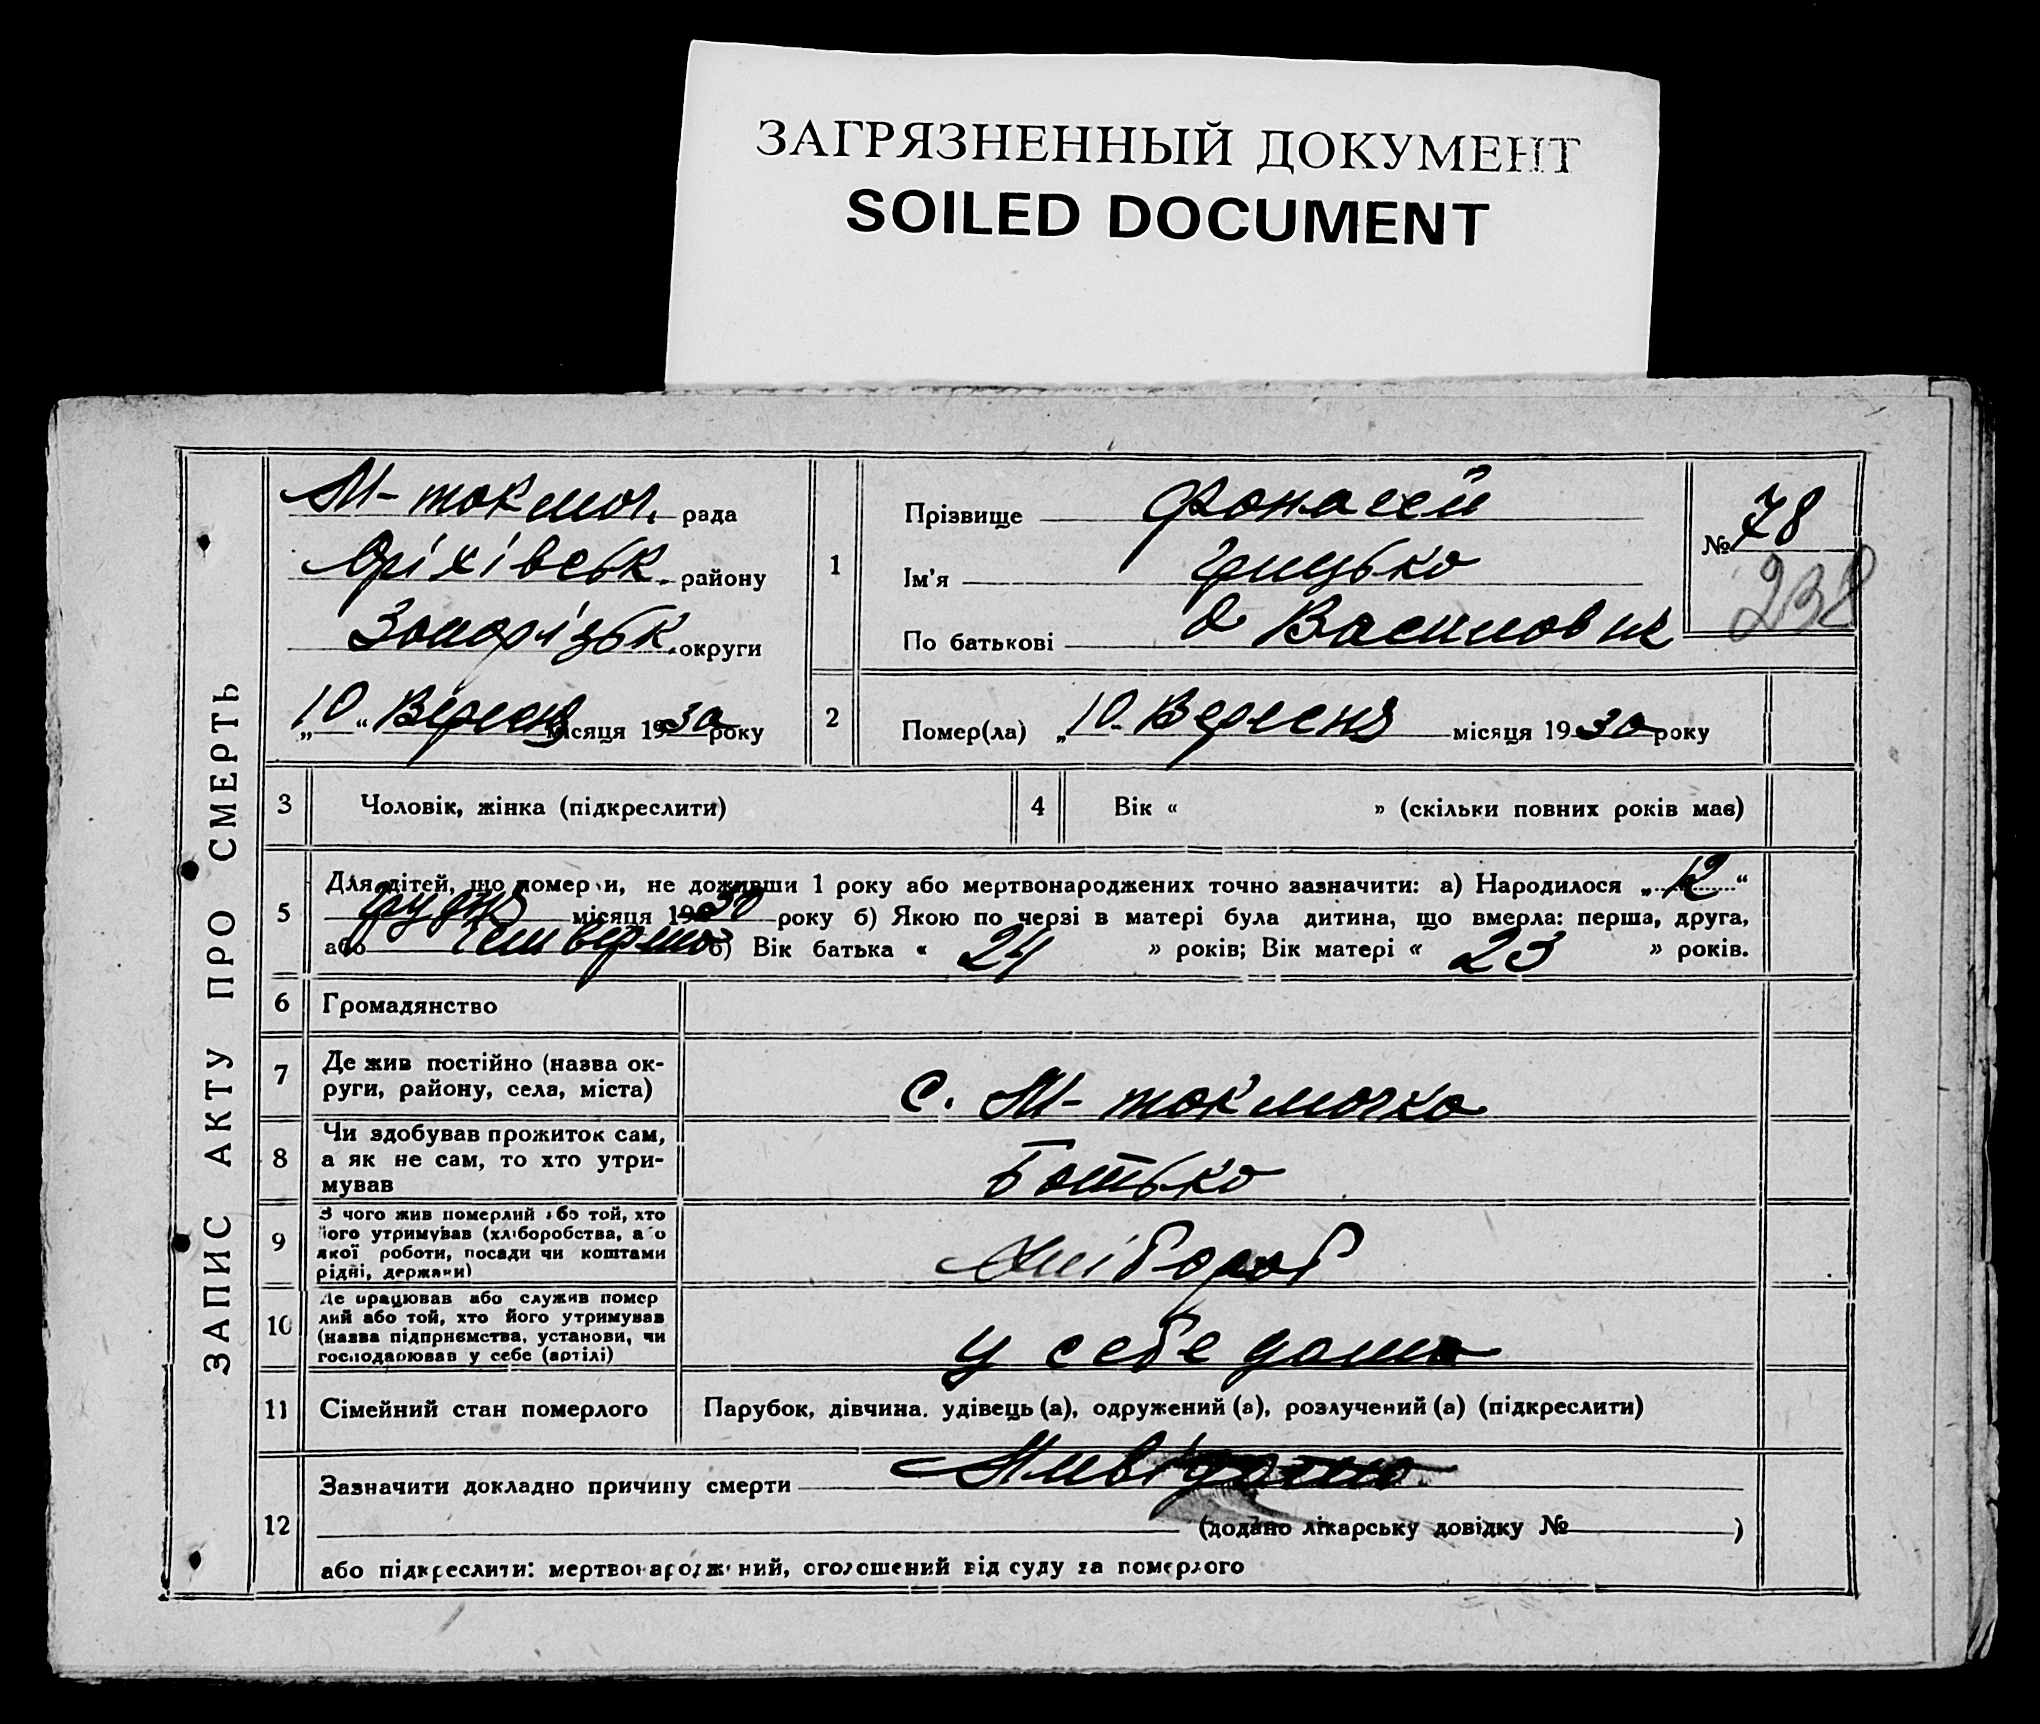 ЗАГРЯЗНЕННЫЙ ДОКУМЕНТ
SOILED DOCUMENT
ЗАПИС АКТУ ПРО СМЕРТЬ
М-токмач. рада
Оріхівськ. району
Запорізьк. округи
„10“ Вересня місяця 1930 року
1
Прізвище
Ім'я Грицько
По батькові Василовик
№ 78
238
2
Помер(ла) „10 Вересня місяця 1930 року
3 Чоловік, жінка (підкреслити)
4 Вік « » (скільки повних років має)
5
Для дітей, що померли, не доживши 1 року або мертвонароджених точно зазначити: а) Народилося „12“
Грудня місяця 1930 року б) Якою по черзі в матері була дитина, що вмерла: перша, друга,
або б) Вік батька « 24 » років; Вік матері « 23 » років.
6 Громадянство
7 Де жив постійно (назва ок-
руги, району, села, міста)
с. М-токмачка
8 Чи здобував прожиток сам,
а як не сам, то хто утри-
мував
Батько
9 З чого жив померлий або той, хто
його утримував (хліборобства, або
якої роботи, посади чи коштами
рідні, держави)
Хлібороб
10 Де працював або служив помер
лий або той, хто його утримував
(назва підприємства, установи, чи
господарював у себе (артілі)
у себе дома
11 Сімейний стан померлого
Парубок, дівчина. удівець (а), одружений (а), розлучений (а) (підкреслити)
12
Зазначити докладно причину смерти
(додано лікарську довідку № )
або підкреслити: мертвонароджений, оголошений від суду за померлого